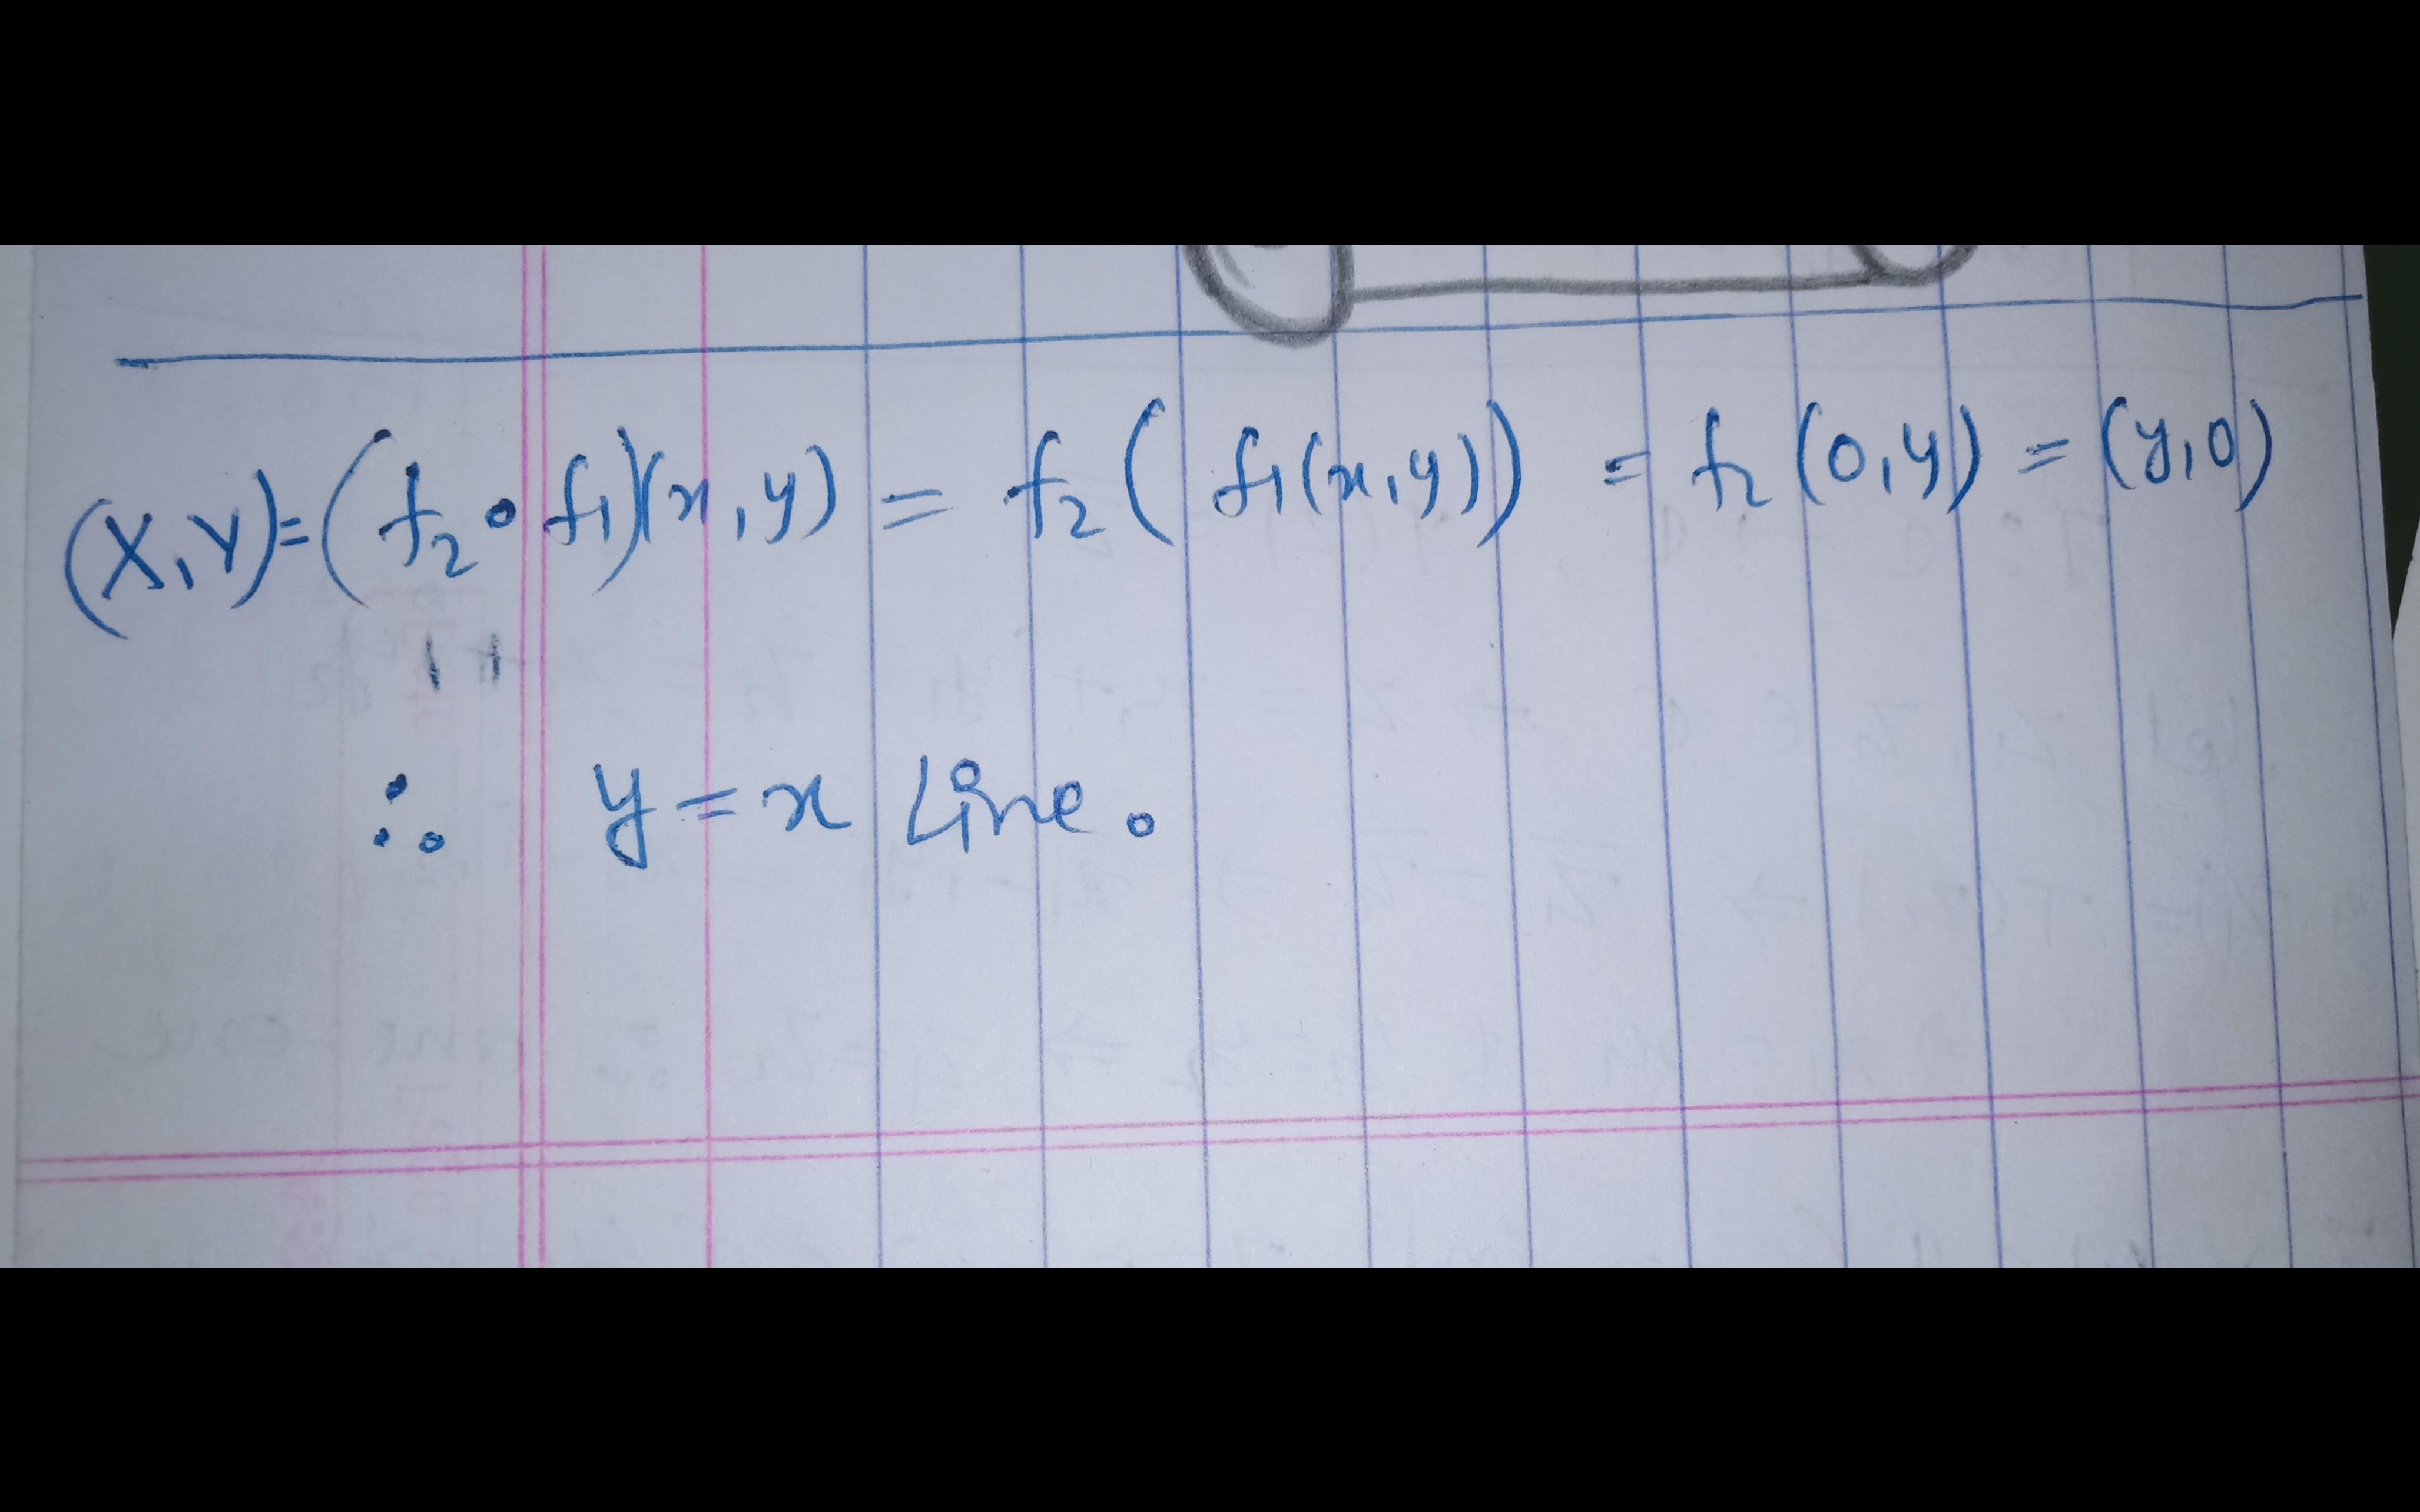 (X,Y)=(f₂∘f₁)(x,y) = f₂(f₁(x,y)) = f₂(0,y) = (y,0)
∴ y=x Line.